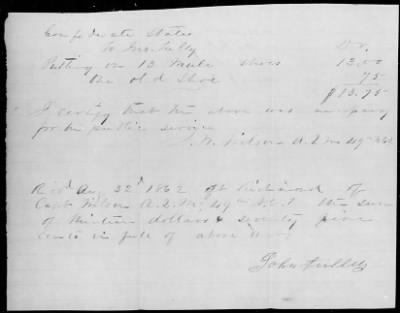 Confederate States
To Jno. Tully Dr.
Putting on 13 Mule Shoes 13.00
" one old Shoe 75
$13.75
I certify that the above was necessary
for the public service
A.Q.M. 49th N.C.
Recd Aug 22d 1862 at Richmond of
Capt A.Q.M. 49th N.C.T. the sum
of thirteen dollars & seventy five
cents in full of above
John Tully